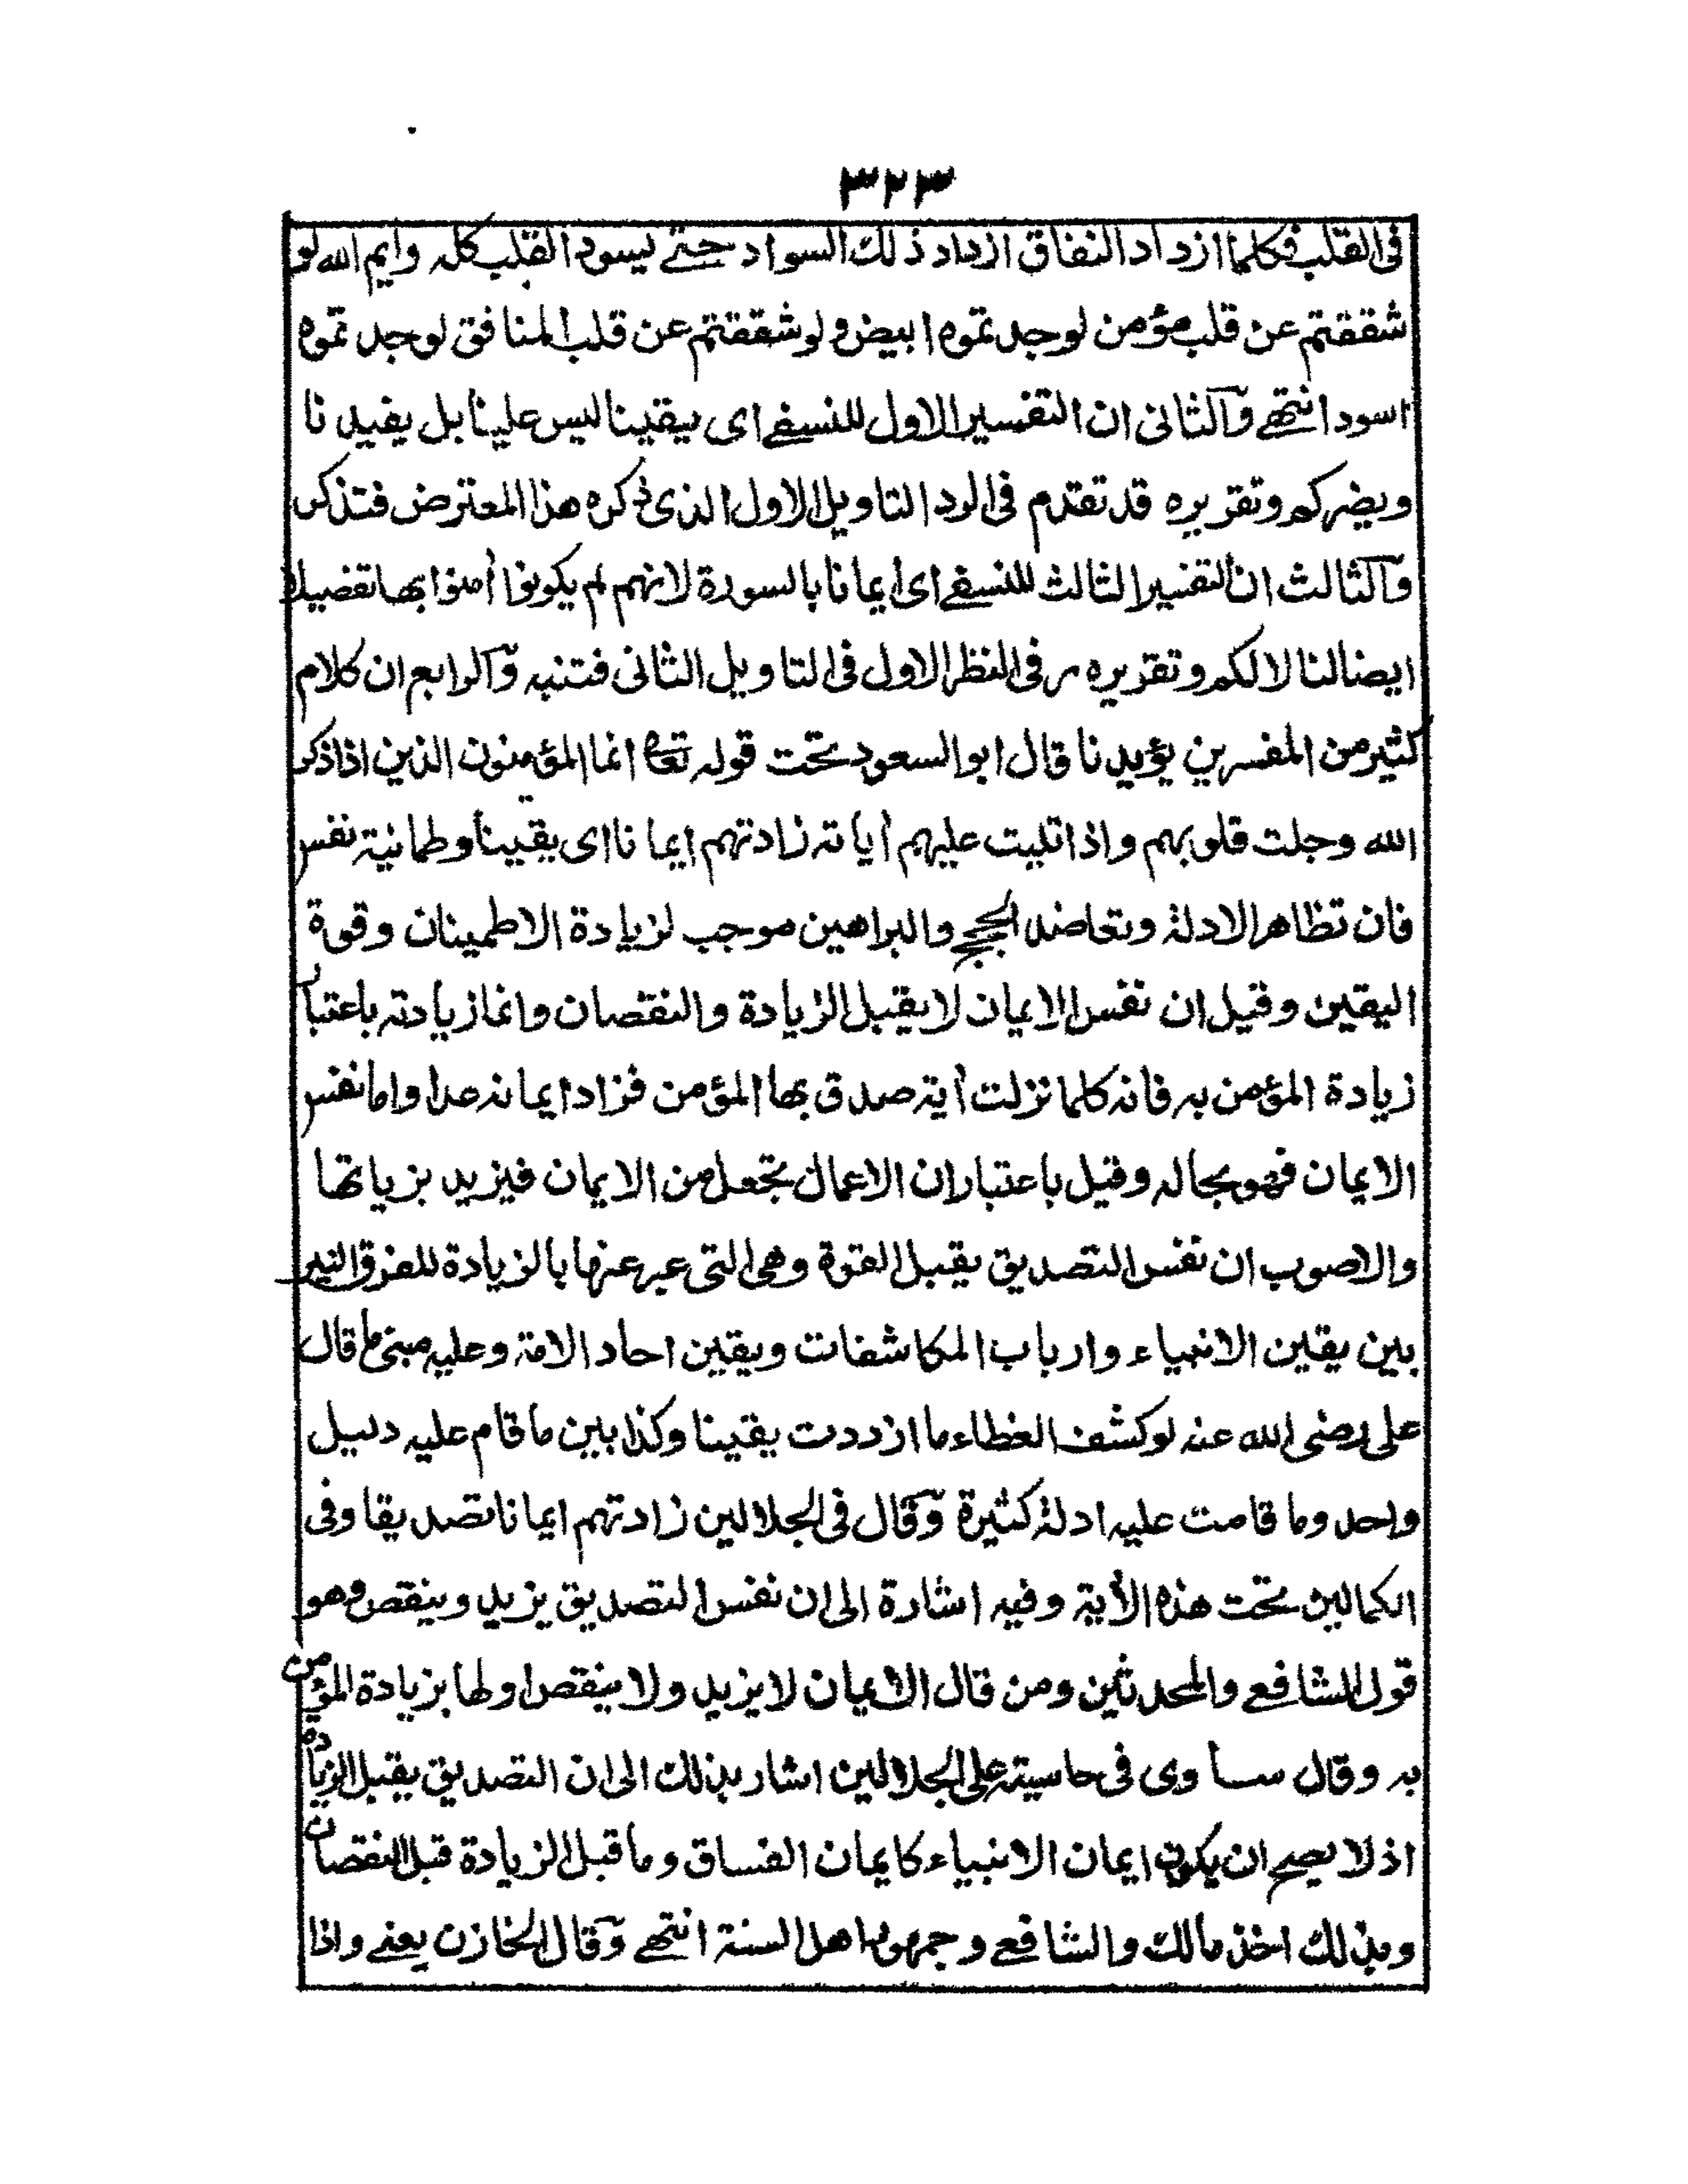 ٣٢٣
فى القلب فكلما ازداد النفاق ازداد ذلك السواد حتے يسود القلب كله وايم الله لو
شققتم عن قلب مؤمن لوجدتموه ابيض ولو شققتم عن قلب المنافق لوجدتموه
اسود انتهے وآلثانى ان التفسير الاول للنسفے اى يقينا ليس علينا بل يفيدنا
ويضركم وتقريره قد تقدم فى الرد التاويل الاول الذى ذكره هذا المعترض فتذكر
وآلثالث ان التفسير الثالث للنسفے اى ايمانا بالسورة لانهم لم يكونوا أمنوا بها تفصيلا
ايضا لنا لا لكم وتقريره مر فى النظر الاول فى التاويل الثانى فتنبه وآلرابع ان كلام
كثير من المفسرين يؤيدنا قال ابو السعود تحت قوله تعا انما المؤمنون الذين اذا ذكر
الله وجلت قلوبهم واذا تليت عليهم أياته زادتهم ايمانا اى يقينا وطمانية نفس
فان تظاهر الادلة وتعاضد الحجج والبراهين موجب لزيادة الاطمينان وقوة
اليقين وقيل ان نفس الايمان لا يقبل الزيادة والنقصان وانما زيادته باعتبار
زيادة المؤمن به فانه كلما نزلت أية صدق بها المؤمن فزاد ايمانه عددا واما نفس
الايمان فهو بحاله وقيل باعتبار ان الاعمال تجعل من الايمان فيزيد بزياتها
والاصوب ان نفس التصديق يقبل القوة وهى التى عبر عنها بالزيادة للفرق النير
بين يقين الانبياء وارباب المكاشفات ويقين احاد الامة وعليه مبنى ما قال
على رضى الله عنه لو كشف الغطاء ما ازددت يقينا وكذا بين ما قام عليه دليل
واحد وما قامت عليه ادلة كثيرة وٓقال فى الجلالين زادتهم ايمانا تصديقا وفى
الكمالين تحت هذه الأية وفيه اشارة الى ان نفس التصديق يزيد وينقص وهو
قول الشافعے والمحدثين ومن قال الايمان لا يزيد ولا ينقص اولها بزيادة المؤمن
به وقال ساوى فى حاسيته على الجلالين اشار بذلك الى ان التصديق يقبل الزيادة
اذ لا يصح ان يكون ايمان الانبياء كايمان الفساق وما قبل الزيادة قبل النقصان
وبذلك اخذ مالك والشافعے وجمهور اهل السنة انتهے وٓقال الخازن يعنے واذا